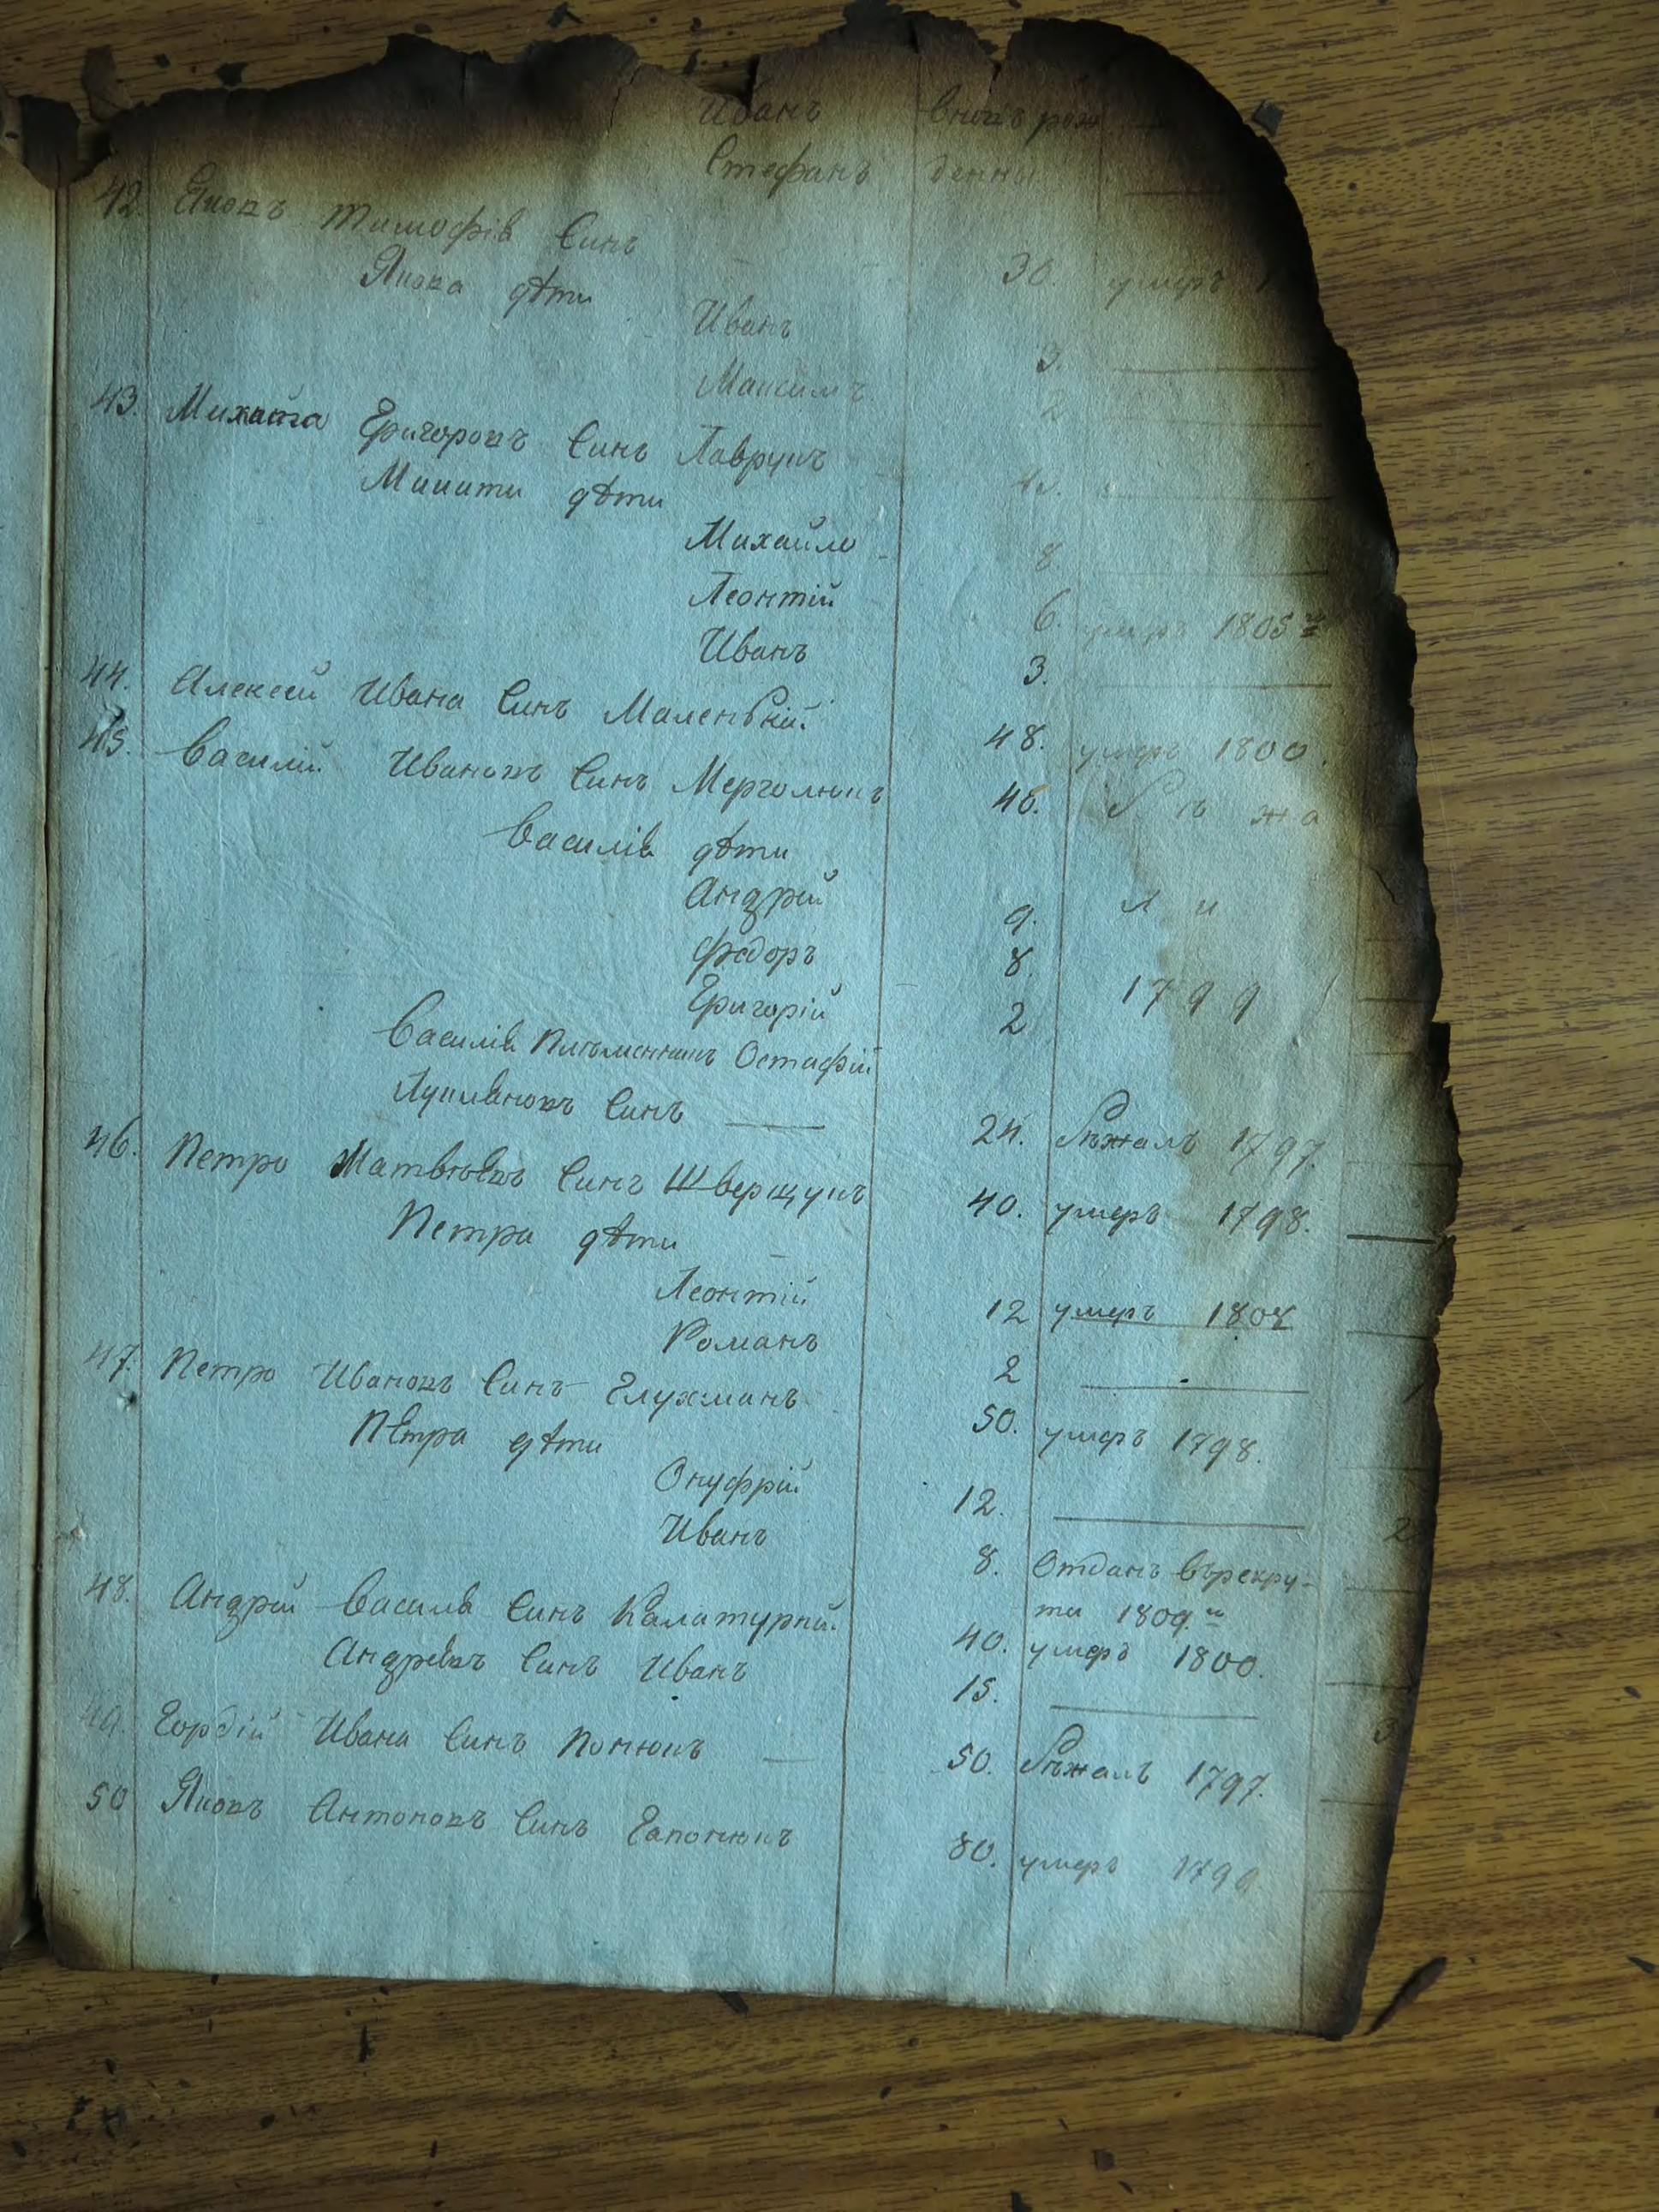 Иванъ внов рож
Стефанъ денны
42. Яковъ Тимофів Синъ 30. умеръ 1
Якова дѣти
Иванъ 3.
Максимъ 2
43. Григоровъ Синъ Лаврукъ
Микити дѣти
Михайло 8.
Леонтій 6. умеръ 1805го
Иванъ 3.
44. Алексей Ивана Синъ Маленький 48. умеръ 1800.
45. Василий Ивановъ Синъ Мерголюкъ 46. Бѣжа
Василів дѣти
Андрій 9. ли
Федоръ 8.
Григорій 2 1799
Василів племенникъ Остафій
Лукияновъ Синъ — 24. Бѣжалъ 1797.
46. Петро Матвѣевъ Синъ Шверщукъ 40. умеръ 1798.
Петра дѣти
Леонтій 12 умеръ 1808
Романъ 2
47. Петро Ивановъ Синъ Глухманъ 50. умеръ 1798.
Петра дѣти
Онуфрій 12.
Иванъ 8. Отданъ върекру-
ти 1809.го
48. Андрій Василів Синъ Калатурній 40. умеръ 1800.
Андреевъ Синъ Иванъ 15.
49. Гордій Ивана Синъ Понюкъ — 50. Бѣжалъ 1797.
50 Яковъ Антоновъ Синъ Гапонюкъ 80. умеръ 1799.